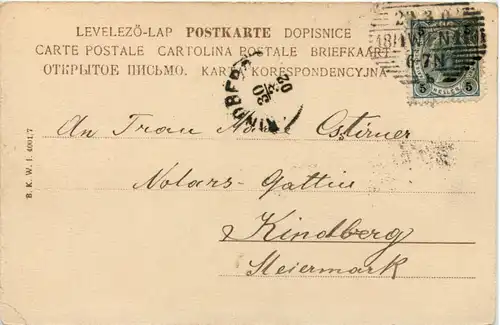 LEVELEZŐ-LAP POSTKARTE DOPISNICE
CARTE POSTALE CARTOLINA POSTALE BRIEFKAART
ОТКРЫТОЕ ПИСЬМО. KARTA KORESPONDENCYJNA
KINDBERG
20
02
6-7N
5 5
B. K. W. I. 4001/7
An Frau Adele Ostirner
Notars-Gattin
Kindberg
Steiermark